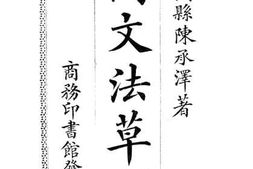 縣陳承澤著
文法草
商務印書館發